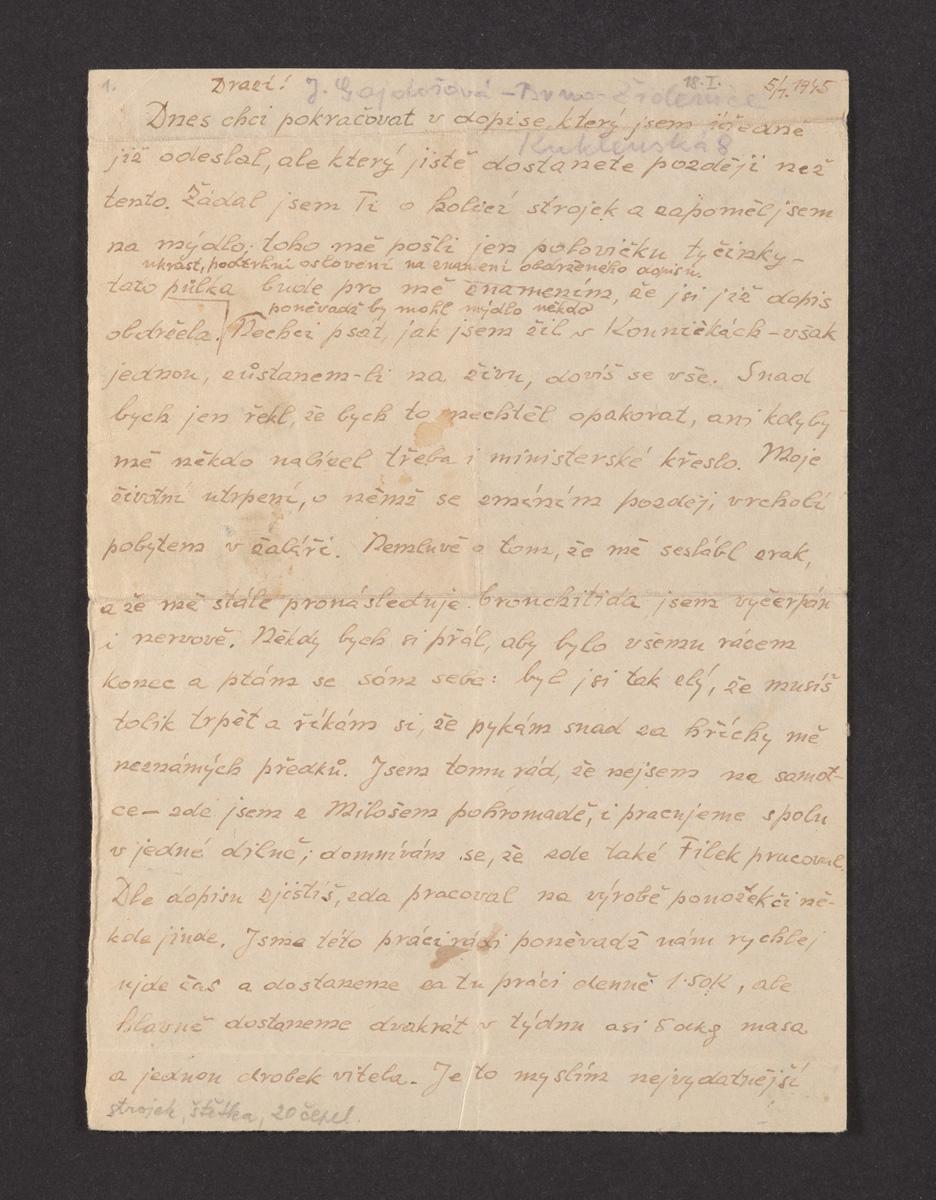 1. Drazí! J. Gajdošová - Brno - Židenice 18.I. 5/I. 1945
Kuklenská 8
Dnes chci pokračovat v dopise, který jsem úředně
již odeslal, ale který jistě dostanete později než
tento. Žádal jsem Ti o holicí strojek a zapoměl jsem
na mýdlo; toho mě pošli jen polovičku tyčinky -
ukrást, podtrhni oslovení na znamení obdrženého dopisu.
tato půlka bude pro mě znamením, že jsi již dopis
poněvadž by mohl mýdlo někdo
obdržela. Nechci psát, jak jsem žil v Kouničkách - však
jednou, zůstanem-li na živu, dovíš se vše. Snad
bych jen řekl, že bych to nechtěl opakovat, ani kdyby
mě někdo nabízel třeba i ministerské křeslo. Moje
životní utrpení, o němž se zmíním později, vrcholí
pobytem v žaláři. Nemluvě o tom, že mě seslábl zrak,
a že mě stále pronásleduje bronchitida jsem vyčerpán
i nervově. Někdy bych si přál, aby bylo všemu rázem
konec a ptám se sám sebe: byl jsi tak zlý, že musíš
tolik trpět a říkám si, že pykám snad za hříchy mě
neznámých předků. Jsem tomu rád, že nejsem na samot-
ce - zde jsem z Milošem pohromadě, i pracujeme spolu
v jedné dílně; domnívám se, že zde také Filek pracoval.
Dle dopisu zjistíš, zda pracoval na výrobě ponožek či ně-
kde jinde. Jsme této práci rádi poněvadž nám rychlej
ujde čas a dostaneme za tu práci denně 1·50K, ale
hlavně dostaneme dvakrát v týdnu asi 5 dkg masa
a jednou drobek vitela. Je to myslím nejvydatnější
strojek, štětka, 20 čepel.